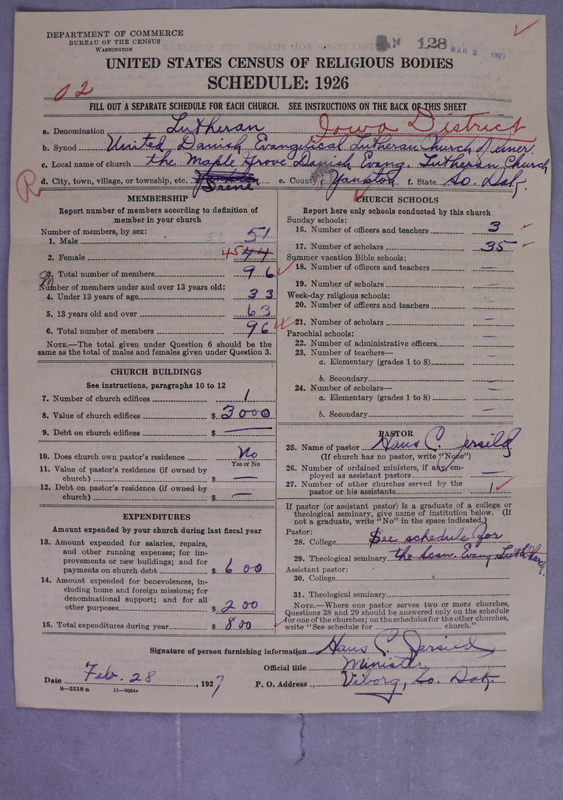 DEPARTMENT OF COMMERCE
BUREAU OF THE CENSUS
WASHINGTON
128
UNITED STATES CENSUS OF RELIGIOUS BODIES
SCHEDULE: 1926
02
FILL OUT A SEPARATE SCHEDULE FOR EACH CHURCH. SEE INSTRUCTIONS ON THE BACK OF THIS SHEET
a. Denomination Lutheran Iowa District
b. Synod United Danish Evangelical Lutheran Church
c. Local name of church the Maple Grove Danish Evang. Lutheran Church
d. City, town, village, or township, etc. Irene e. County Yankton f. State So. Dak.
R
MEMBERSHIP
Report number of members according to definition of member in your church
Number of members, by sex:
1. Male 51
2. Female 45 44
3. Total number of members 96
Number of members under and over 13 years old:
4. Under 13 years of age 33
5. 13 years old and over 63
6. Total number of members 96
NOTE.—The total given under Question 6 should be the same as the total of males and females given under Question 3.
CHURCH BUILDINGS
See instructions, paragraphs 10 to 12
7. Number of church edifices 1
8. Value of church edifices $ 3000
9. Debt on church edifices $ —
10. Does church own pastor's residence No
Yes or No
11. Value of pastor's residence (if owned by church) $ —
12. Debt on pastor's residence (if owned by church) $ —
EXPENDITURES
Amount expended by your church during last fiscal year
13. Amount expended for salaries, repairs, and other running expenses; for improvements or new buildings; and for payments on church debt $ 600
14. Amount expended for benevolences, including home and foreign missions; for denominational support; and for all other purposes $ 200
15. Total expenditures during year $ 800
CHURCH SCHOOLS
Report here only schools conducted by this church
Sunday schools:
16. Number of officers and teachers 3
17. Number of scholars 35
Summer vacation Bible schools:
18. Number of officers and teachers —
19. Number of scholars —
Week-day religious schools:
20. Number of officers and teachers —
21. Number of scholars —
Parochial schools:
22. Number of administrative officers —
23. Number of teachers—
a. Elementary (grades 1 to 8) —
b. Secondary —
24. Number of scholars—
a. Elementary (grades 1 to 8) —
b. Secondary —
PASTOR
25. Name of pastor Hans C. Jersild
(If church has no pastor, write "None")
26. Number of ordained ministers, if any, employed as assistant pastors —
27. Number of other churches served by the pastor or his assistants 1
If pastor (or assistant pastor) is a graduate of a college or theological seminary, give name of institution below. (If not a graduate, write "No" in the space indicated.)
Pastor:
28. College See schedule for
29. Theological seminary the Evang. Luth.
Assistant pastor:
30. College
31. Theological seminary
NOTE.—Where one pastor serves two or more churches, Questions 28 and 29 should be answered only on the schedule for one of the churches; on the schedules for the other churches, write "See schedule for church."
Signature of person furnishing information Hans C. Jersild
Official title Minister
Date Feb. 28, 1927 P. O. Address Viborg, So. Dak.
8—5518a